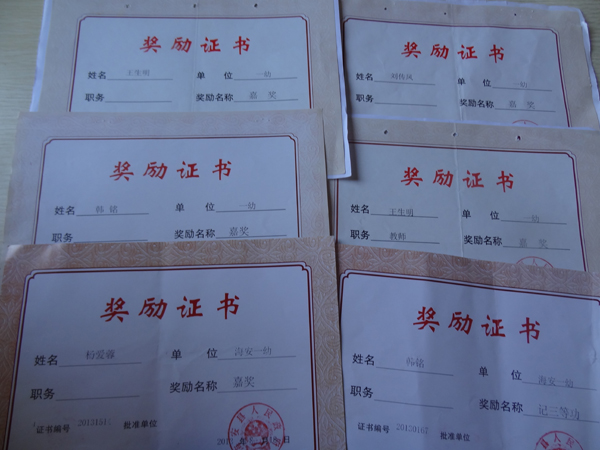 奖励证书
姓名 王生明 单位 一幼
职务 奖励名称 嘉奖
奖励证书
姓名 单位 一幼
职务 奖励名称 嘉奖
奖励证书
姓名 韩铭 单位 一幼
职务 奖励名称 嘉奖
奖励证书
姓名 王生明 单位 一幼
职务 教师 奖励名称 嘉奖
奖励证书
姓名 杨爱蓉 单位 海安一幼
职务 奖励名称 嘉奖
证书编号 批准单位
奖励证书
姓名 韩铭 单位 海安一幼
职务 奖励名称 记三等功
证书编号 20150167 批准单位